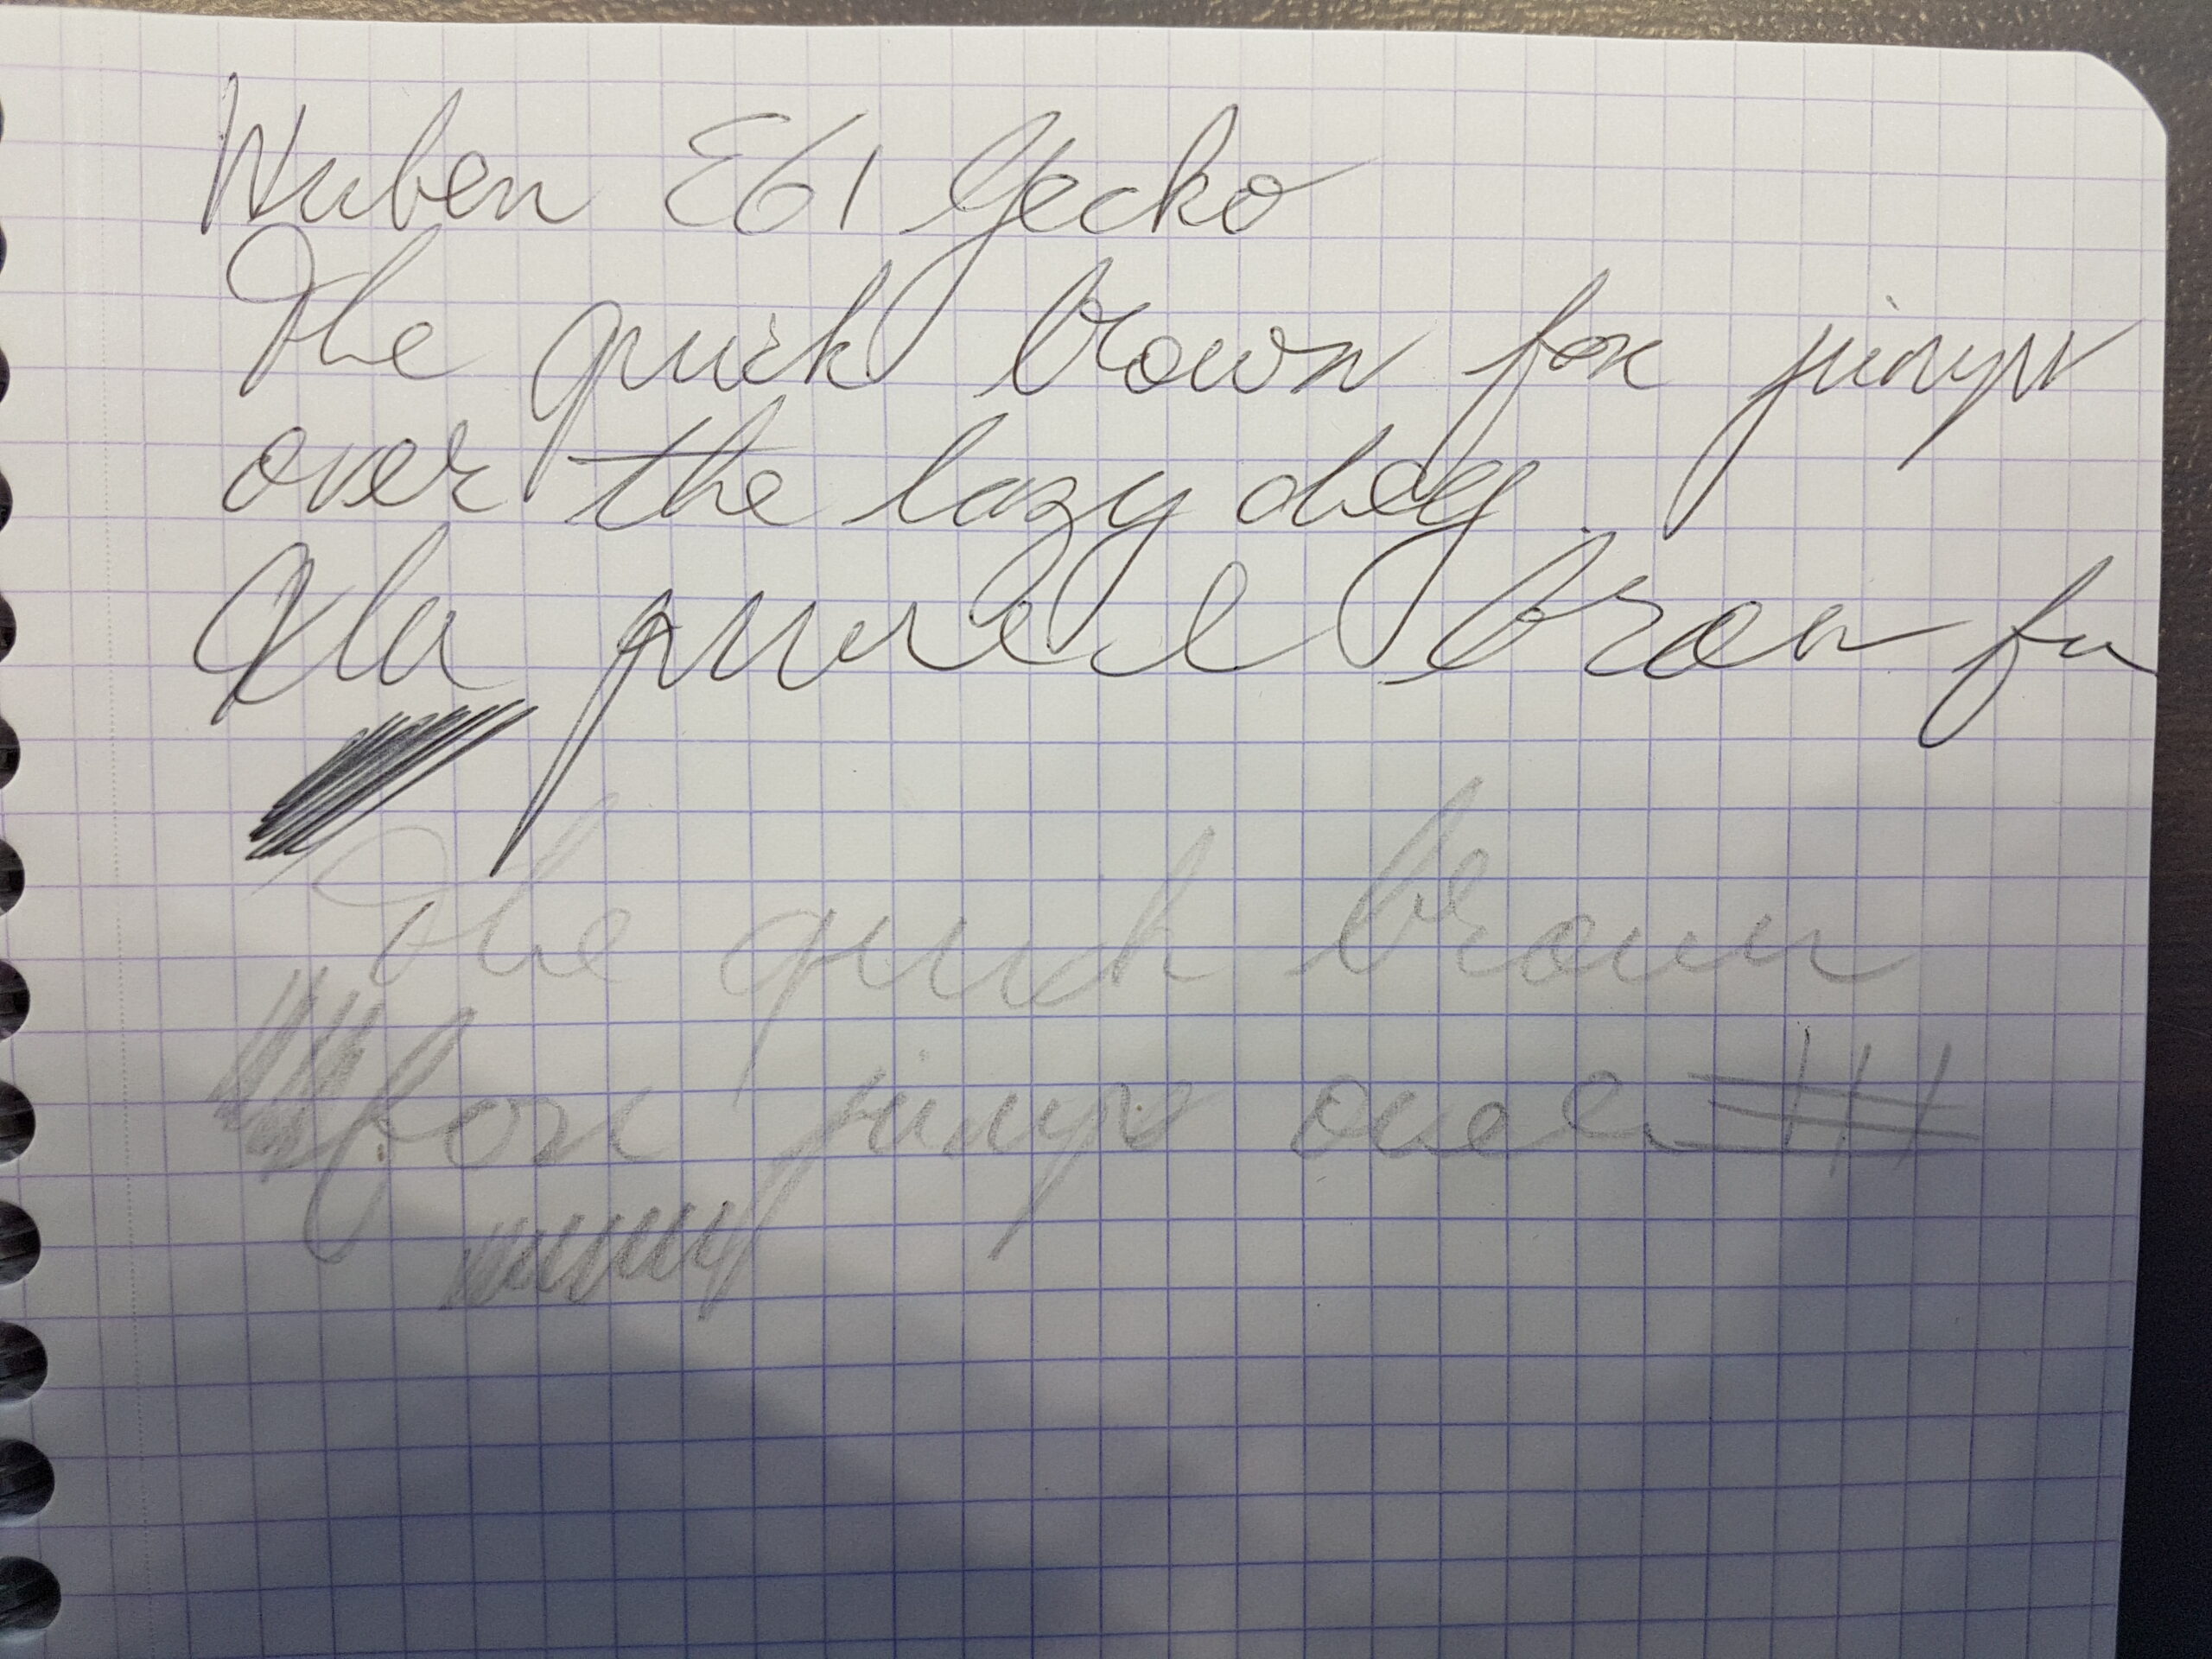 Wuben E61 Gecko
The quick brown fox jumps
over the lazy dog.
brown
The quick brown
fox jumps over